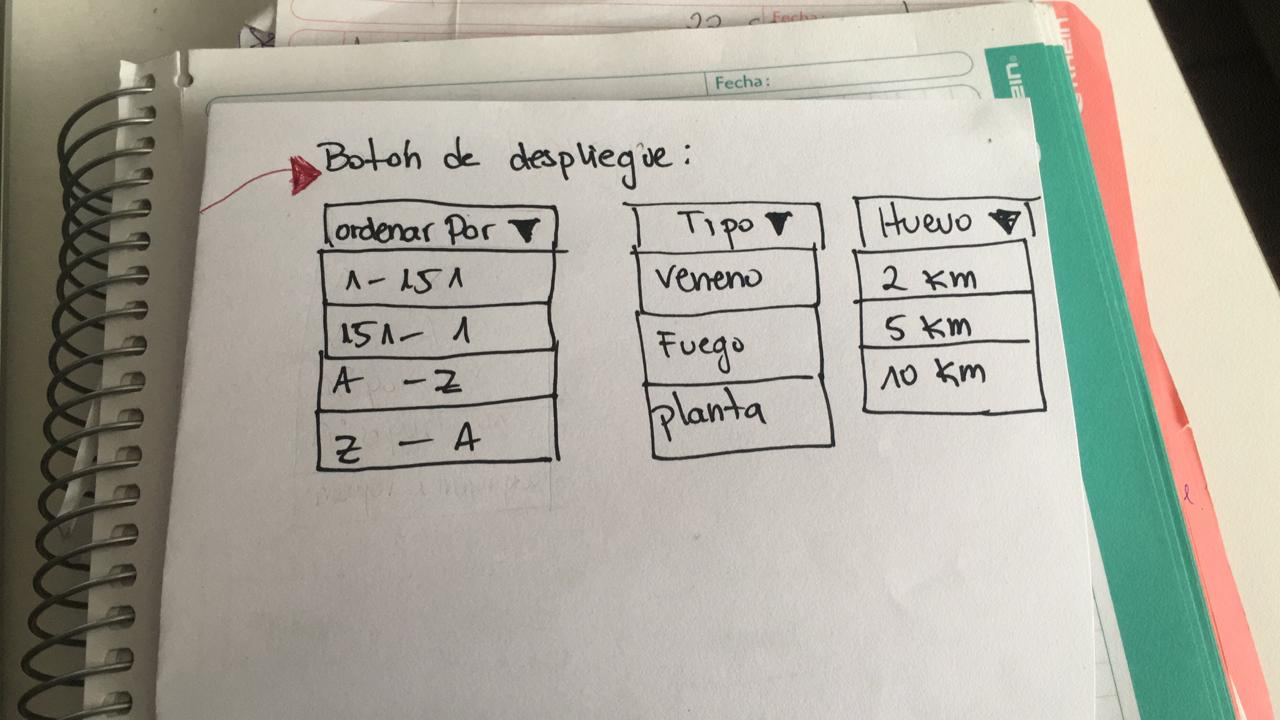 Fecha:
Fecha:
Botoh de despliegue:
ordenar Por ▼
1-151
151-1
A - Z
Z - A
Tipo ▼
Veneno
Fuego
planta
Huevo ▼
2 Km
5 Km
10 Km